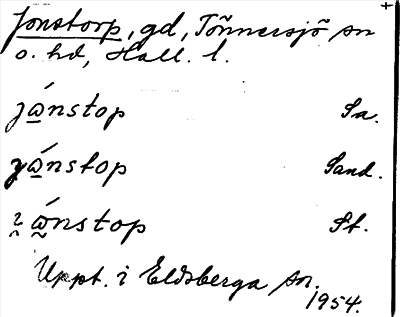 Jonstorp, gd, Tönnersjö sn
o. hd, Hall. l.
jώ̱nstop Sa.
yώ̱nstop Sand.
ι̯ώ̰nstop St.
Uppt. i Eldsberga sn.
1954.